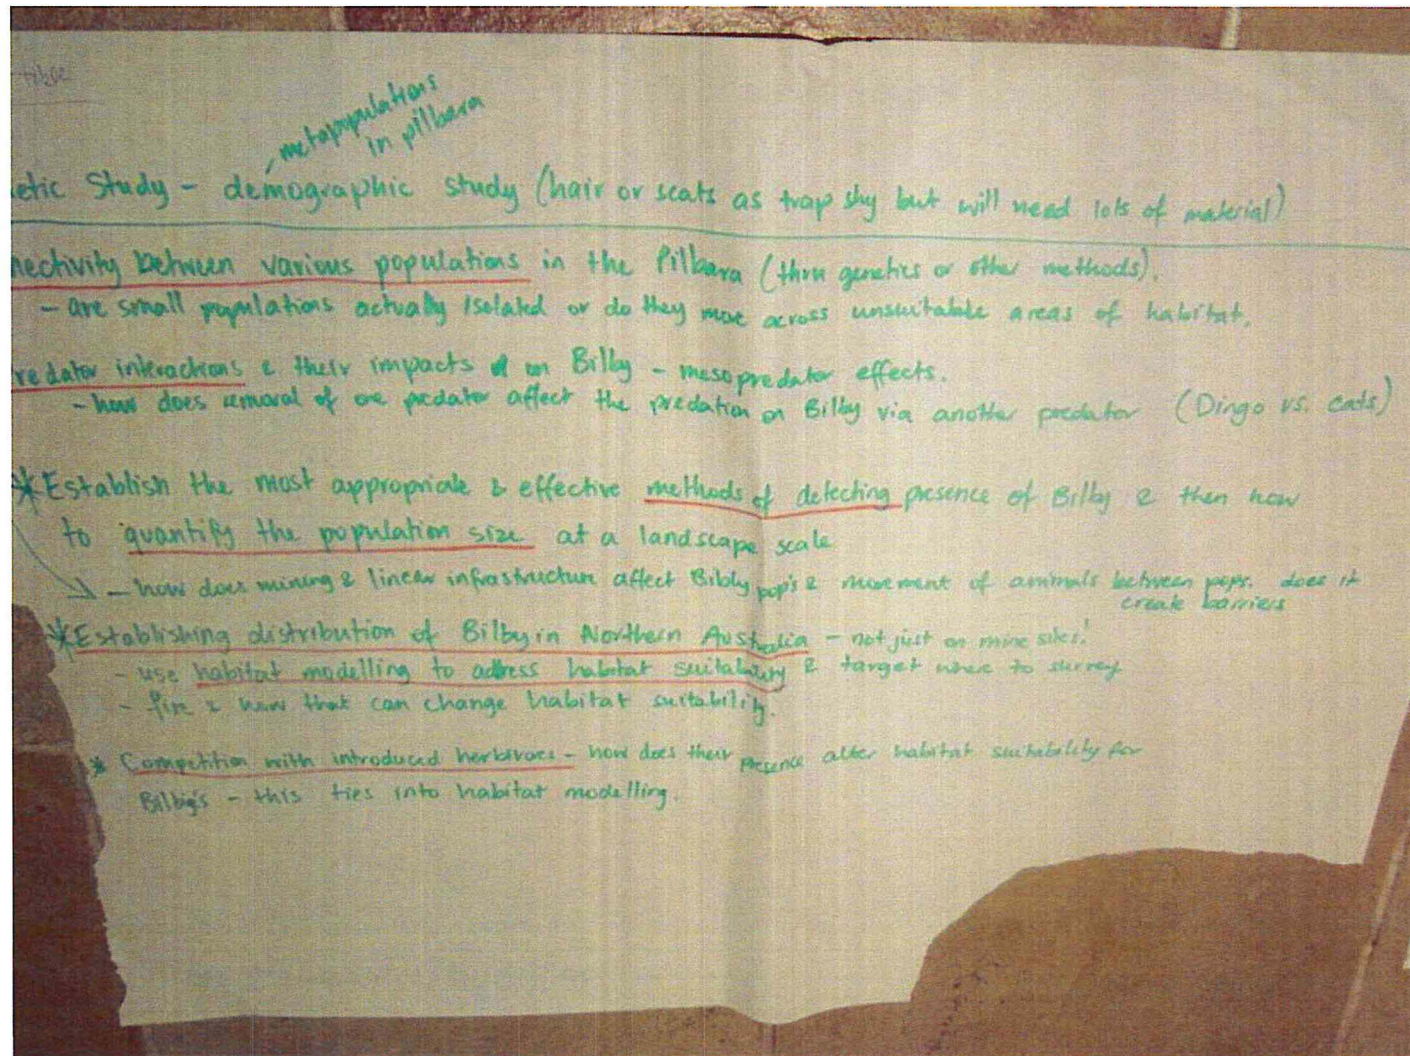 metapopulations
in pilbara
etic Study - demographic study (hair or scats as trap shy but will need lots of material)
nectivity between various populations in the Pilbara (thru genetics or other methods).
- are small populations actually isolated or do they move across unsuitable areas of habitat.
redator interactions & their impacts on Bilby - mesopredator effects.
- how does removal of one predator affect the predation on Bilby via another predator (Dingo vs. cats)
*Establish the most appropriate & effective methods of detecting presence of Bilby & then how
to quantify the population size at a landscape scale
- how does mining & linear infrastructure affect Bibly pop's & movement of animals between pops. does it
create barriers
*Establishing distribution of Bilby in Northern Australia - not just on mine sites!
- use habitat modelling to adress habitat suitability & target where to survey
- fire & how that can change habitat suitability.
* Competition with introduced herbivroes - how does their presence alter habitat suitability for
Bilbig's - this ties into habitat modelling.